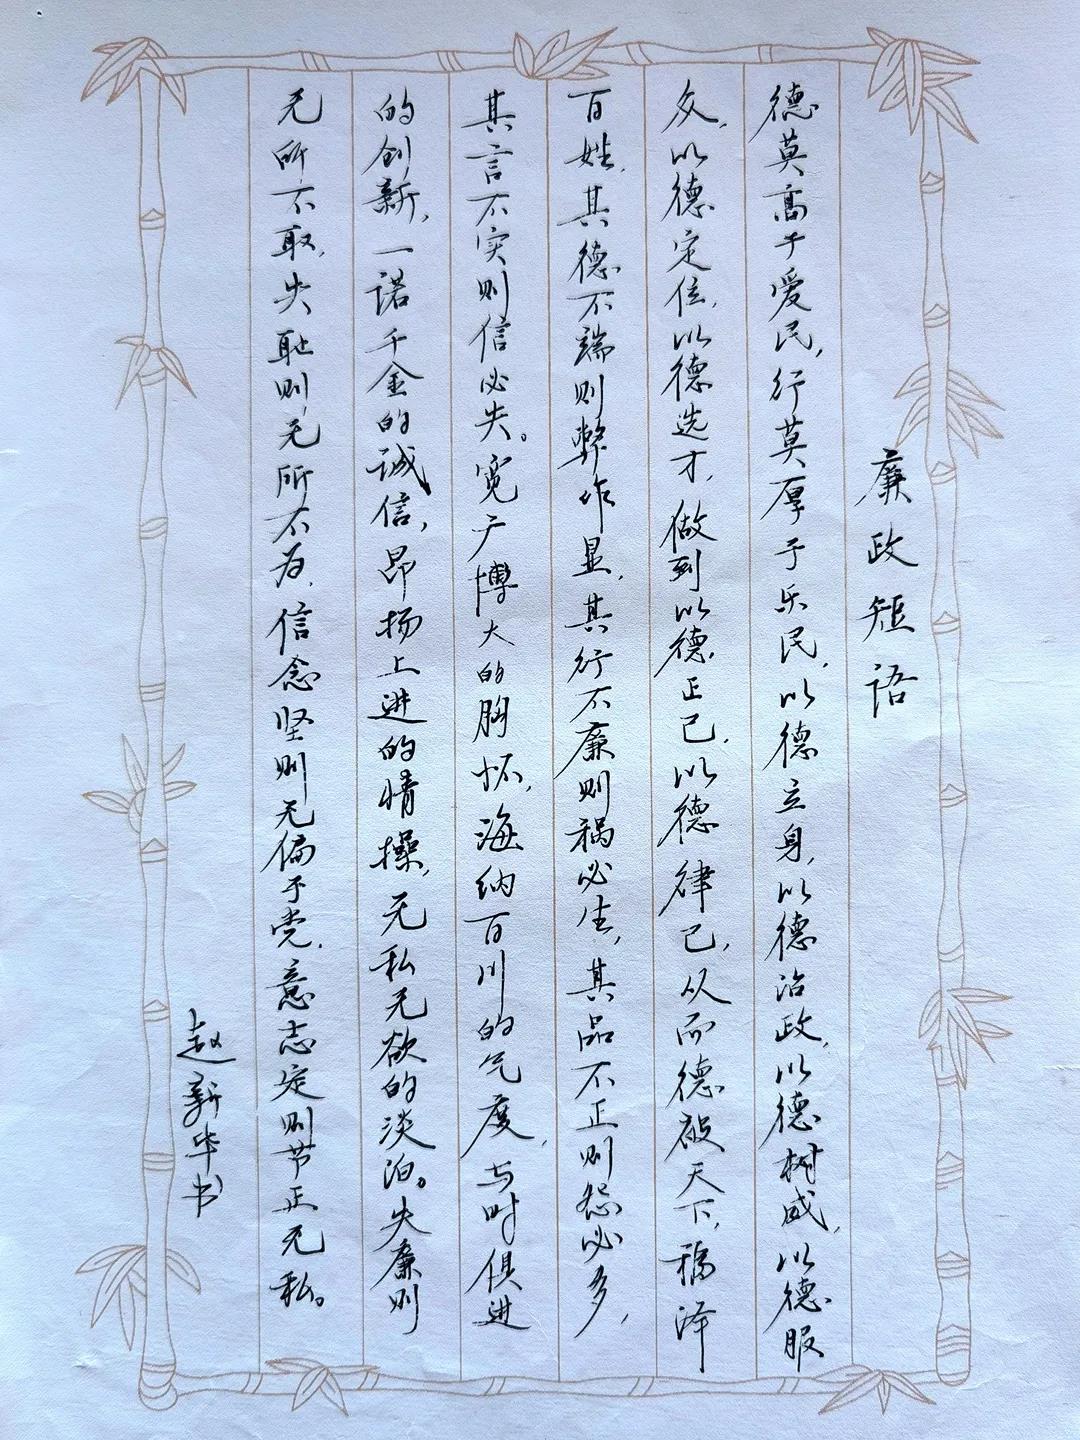 廉政短语
德莫高于爱民，行莫厚于乐民，以德立身，以德治政，以德树威，以德服
众，以德定位，以德选才，做到以德正己，以德律己，从而德被天下，福泽
百姓，其德不端则弊作显，其行不廉则祸必生，其品不正则怨必多，
其言不实则信必失。宽广博大的胸怀，海纳百川的气度，与时俱进
的创新，一诺千金的诚信，昂扬上进的情操，无私无欲的淡泊。失廉则
无所不取，失耻则无所不为，信念坚则无偏于党，意志定则节正无私。
赵新华书